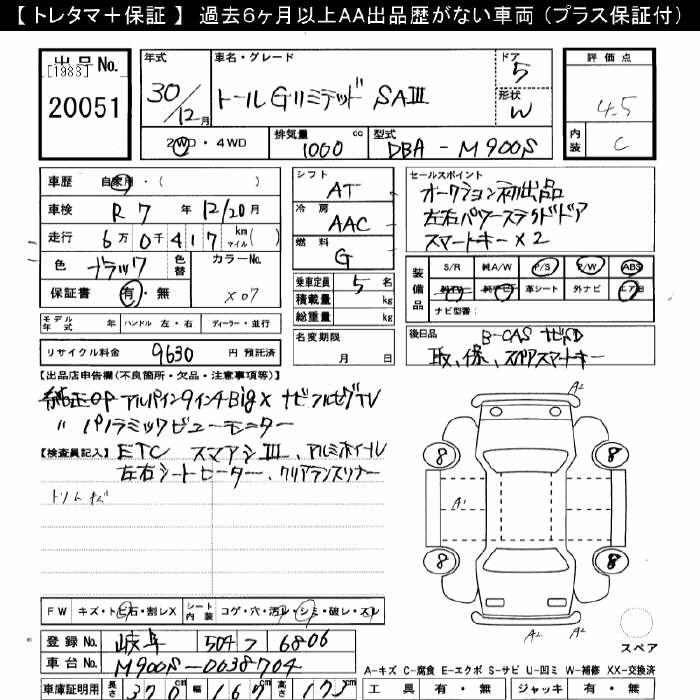 【トレタマ＋保証】 過去6ヶ月以上AA出品歴がない車両（プラス保証付）
出品No.
[1983]
20051
年式
30/12月
車名・グレード
トールGリミテッド SAⅢ
ドア
5
形状
W
評価点
4.5
内装
C
2WD・4WD
排気量 cc
1000
型式
DBA - M900S
車歴 自家用・( )
車検 R7年 12/20月
走行 6万0千417 km マイル( )
色 ブラック 色替
カラーNo.
X07
保証書 有・無
シフト
AT
冷房
AAC
燃料
G
乗車定員 5名
積載量 kg
総重量 kg
セールスポイント
オークション初出品
左右パワースライドドア
スマートキー×2
装備品
S/R 純A/W P/S P/W ABS
純TV 純ナビ 革シート 外ナビ エアB
ナビ型番：
モデル年式 年 ハンドル 左・右 ディーラー・並行
リサイクル料金 9630 円 預託済
名変期限
月 日
後日品
B-CAS ナビSD
取、保、スペアスマートキー
【出品店申告欄(不良箇所・欠品・注意事項等)】
純正OP アルパイン9インチBigX ナビフルセグTV
〃 パノラミックビューモニター
【検査員記入】 ETC スマアシⅢ、アルミホイール
左右シートヒーター、クリアランスソナー
トリムキズ
A2
8
8
A1
8
8
A2
A2
スペア
FW キズ・トビ石・割レX
シート内装 コゲ・穴・汚レ・シミ・破レ・スレ
登録No. 岐阜 504 つ 6806
車台No. M900S-0038704
A-キズ C-腐食 E-エクボ S-サビ U-凹ミ W-補修 XX-交換済
車庫証明用 長さ 370cm 幅 167cm 高さ 173cm
工具 有・無 ジャッキ 有・無